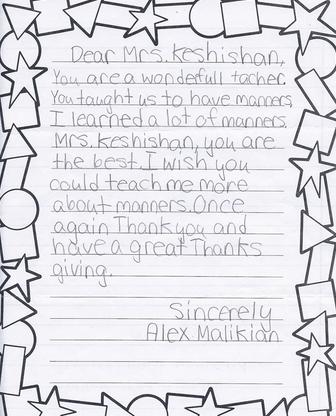 Dear Mrs. Keshishan,
You are a wondefull tacher.
You taught us to have manners,
I learned a lot of manners.
Mrs. Keshishan, you are
the best. I wish you
could teach me more
about manners. Once
again Thank you and
have a great Thanks
giving.
Sincerely
Alex Malikian